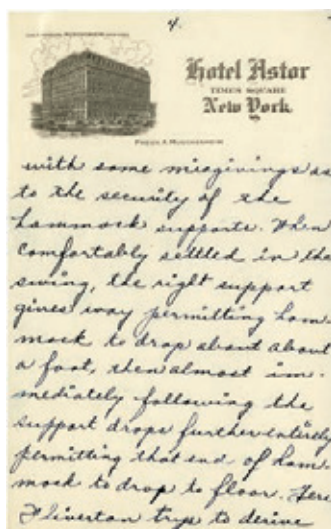 4.
Hotel Astor
TIMES SQUARE
New York.
FRED'K A. MUSCHENHEIM
with some misgivings as
to the security of the
hammock supports. When
comfortably settled in the
swing, the right support
gives way permitting ham-
mock to drop about about
a foot, then almost im-
mediately following the
support drops further entirely
permitting that end of ham-
mock to drop to floor. Here
Fliverton trys to derive